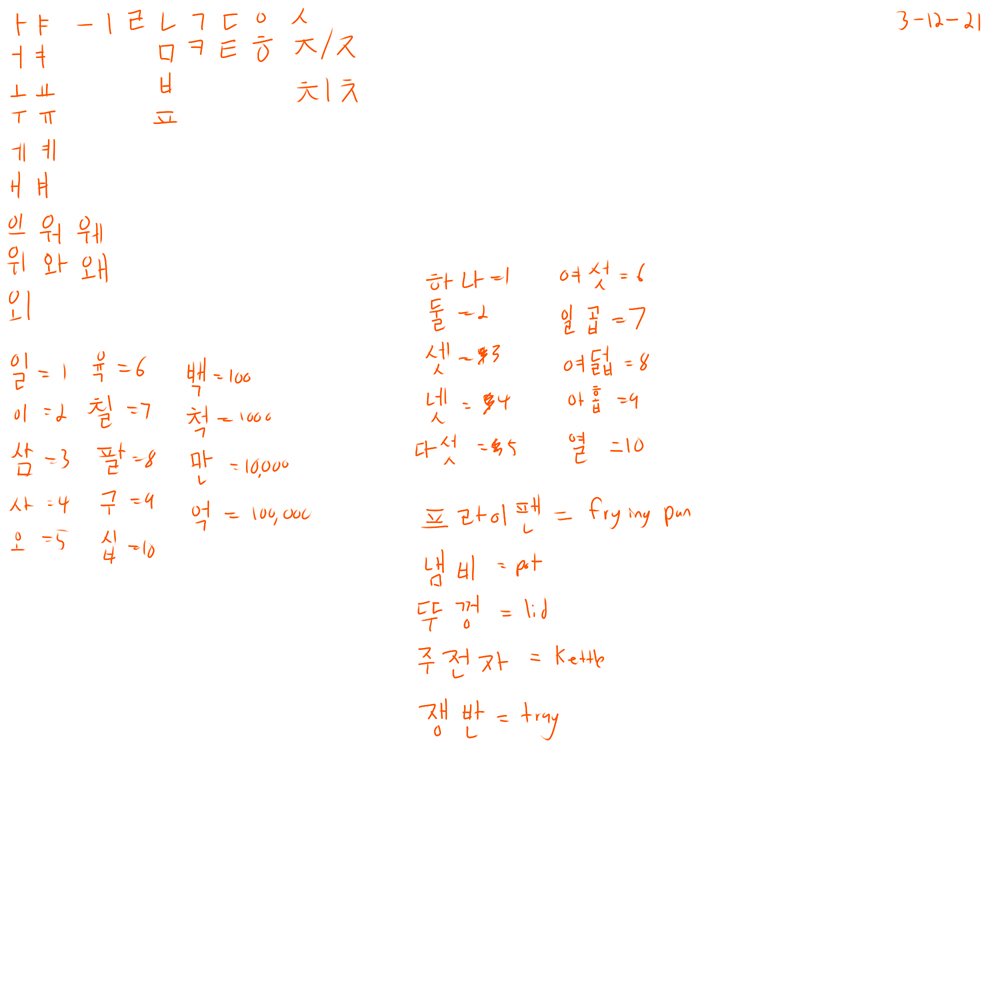 3-12-21
ㅏ ㅑ ㅡ ㅣ ㄹ ㄴ ㄱ ㄷ ㅇ ㅅ
ㅓ ㅕ ㅁ ㅋ ㅌ ㅎ ㅈ/ㅈ
ㅗ ㅛ ㅂ ㅊ|ㅊ
ㅜ ㅠ ㅍ
ㅔ ㅖ
ㅐ ㅒ
의 워 웨
위 와 왜
외
일 = 1 육 = 6 백 = 100
이 = 2 칠 = 7 척 = 1000
삼 = 3 팔 = 8 만 = 10,000
사 = 4 구 = 9 억 = 100,000
오 = 5 십 = 10
하나 = 1 여섯 = 6
둘 = 2 일곱 = 7
셋 = 3 여덟 = 8
넷 = 4 아홉 = 9
다섯 = 5 열 = 10
프라이팬 = frying pan
냄비 = pot
뚜껑 = lid
주전자 = kettle
쟁반 = tray